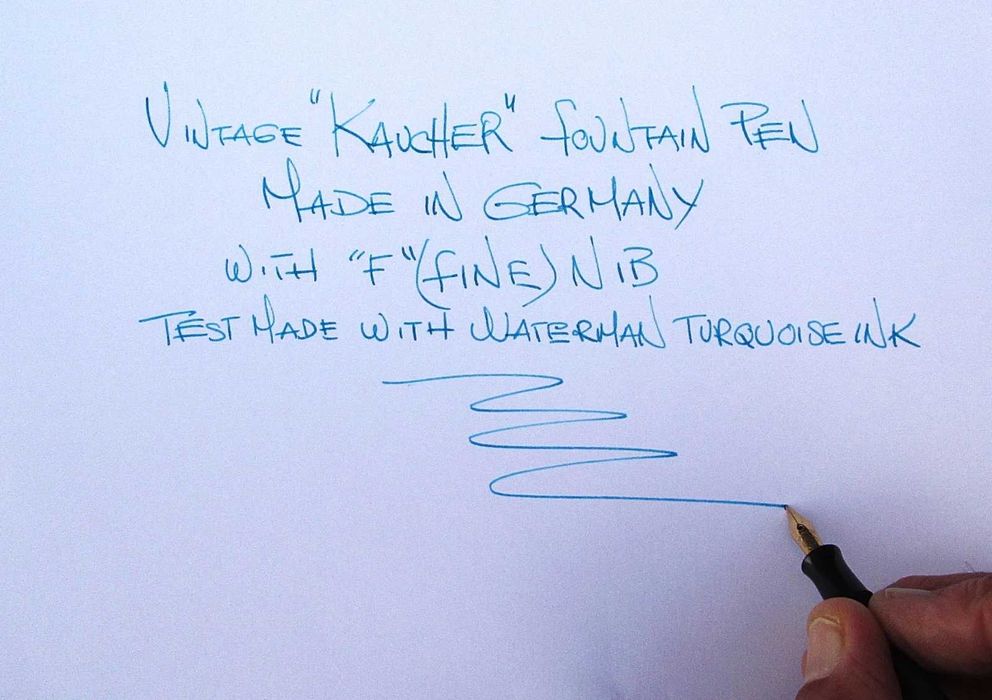 VINTAGE "KAUCHER" FOUNTAIN PEN
MADE IN GERMANY
WITH "F" (FINE) NIB
TEST MADE WITH WATERMAN TURQUOISE INK